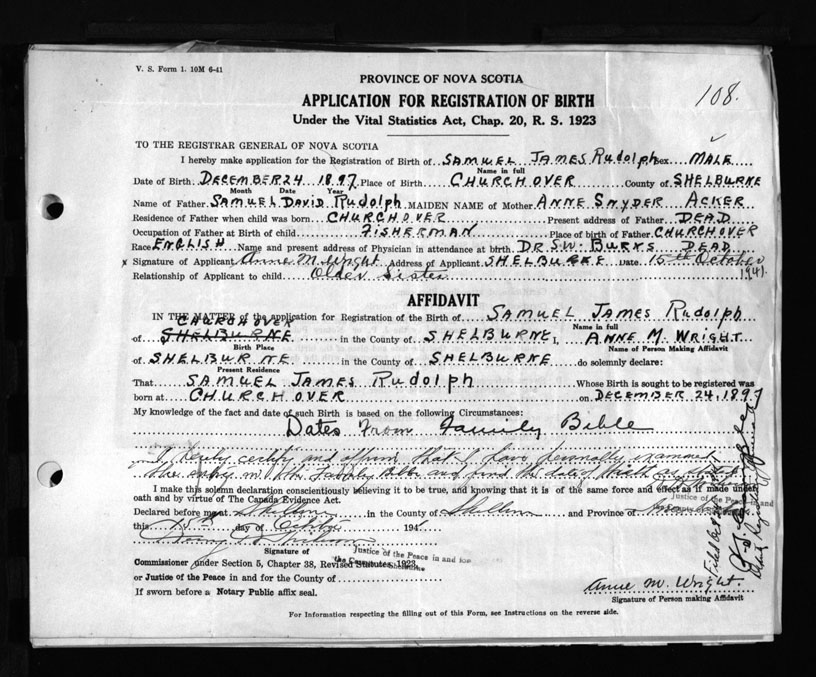 V. S. Form 1. 10M 6-41
PROVINCE OF NOVA SCOTIA
108.
APPLICATION FOR REGISTRATION OF BIRTH
Under the Vital Statistics Act, Chap. 20, R. S. 1923
TO THE REGISTRAR GENERAL OF NOVA SCOTIA
I hereby make application for the Registration of Birth of SAMUEL JAMES Rudolph Sex MALE
Name in full
Date of Birth DECEMBER 24 1897. Place of Birth CHURCHOVER County of SHELBURNE
Month Date Year
Name of Father SAMUEL DAVID RUDOLPH MAIDEN NAME of Mother ANNE SNYDER ACKER
Residence of Father when child was born CHURCHOVER Present address of Father DEAD
Occupation of Father at Birth of child FISHERMAN Place of birth of Father CHURCHOVER
Race ENGLISH Name and present address of Physician in attendance at birth. DR. S.W. BURNS DEAD
x Signature of Applicant Anne M. Wright Address of Applicant SHELBURNE Date 15th October
1941.
Relationship of Applicant to child Older Sister
AFFIDAVIT
IN THE MATTER of the application for Registration of the Birth of SAMUEL JAMES Rudolph
CHURCHOVER
Name in full
of SHELBURNE in the County of SHELBURNE I, ANNE M. WRIGHT
Birth Place
Name of Person Making Affidavit
of SHELBURNE in the County of SHELBURNE do solemnly declare:
Present Residence
That SAMUEL JAMES Rudolph Whose Birth is sought to be registered was
born at CHURCHOVER on DECEMBER 24, 1897
My knowledge of the fact and date of such Birth is based on the following Circumstances:
Dates From Family Bible
I hereby certify and affirm that I have personally examined
the entry in the Family Bible and find the date of birth as stated
I make this solemn declaration conscientiously believing it to be true, and knowing that it is of the same force and effect as if made under
oath and by virtue of The Canada Evidence Act.
Justice of the Peace in and
Declared before me at Shelburne in the County of Shelburne and Province of
this 15th day of October 1941
Signature of
Justice of the Peace in and for
the County of Shelburne
Commissioner under Section 5, Chapter 38, Revised Statutes, 1923
or Justice of the Peace in and for the County of
If sworn before a Notary Public affix seal.
Anne M. Wright.
Signature of Person making Affidavit
For Information respecting the filling out of this Form, see Instructions on the reverse side.